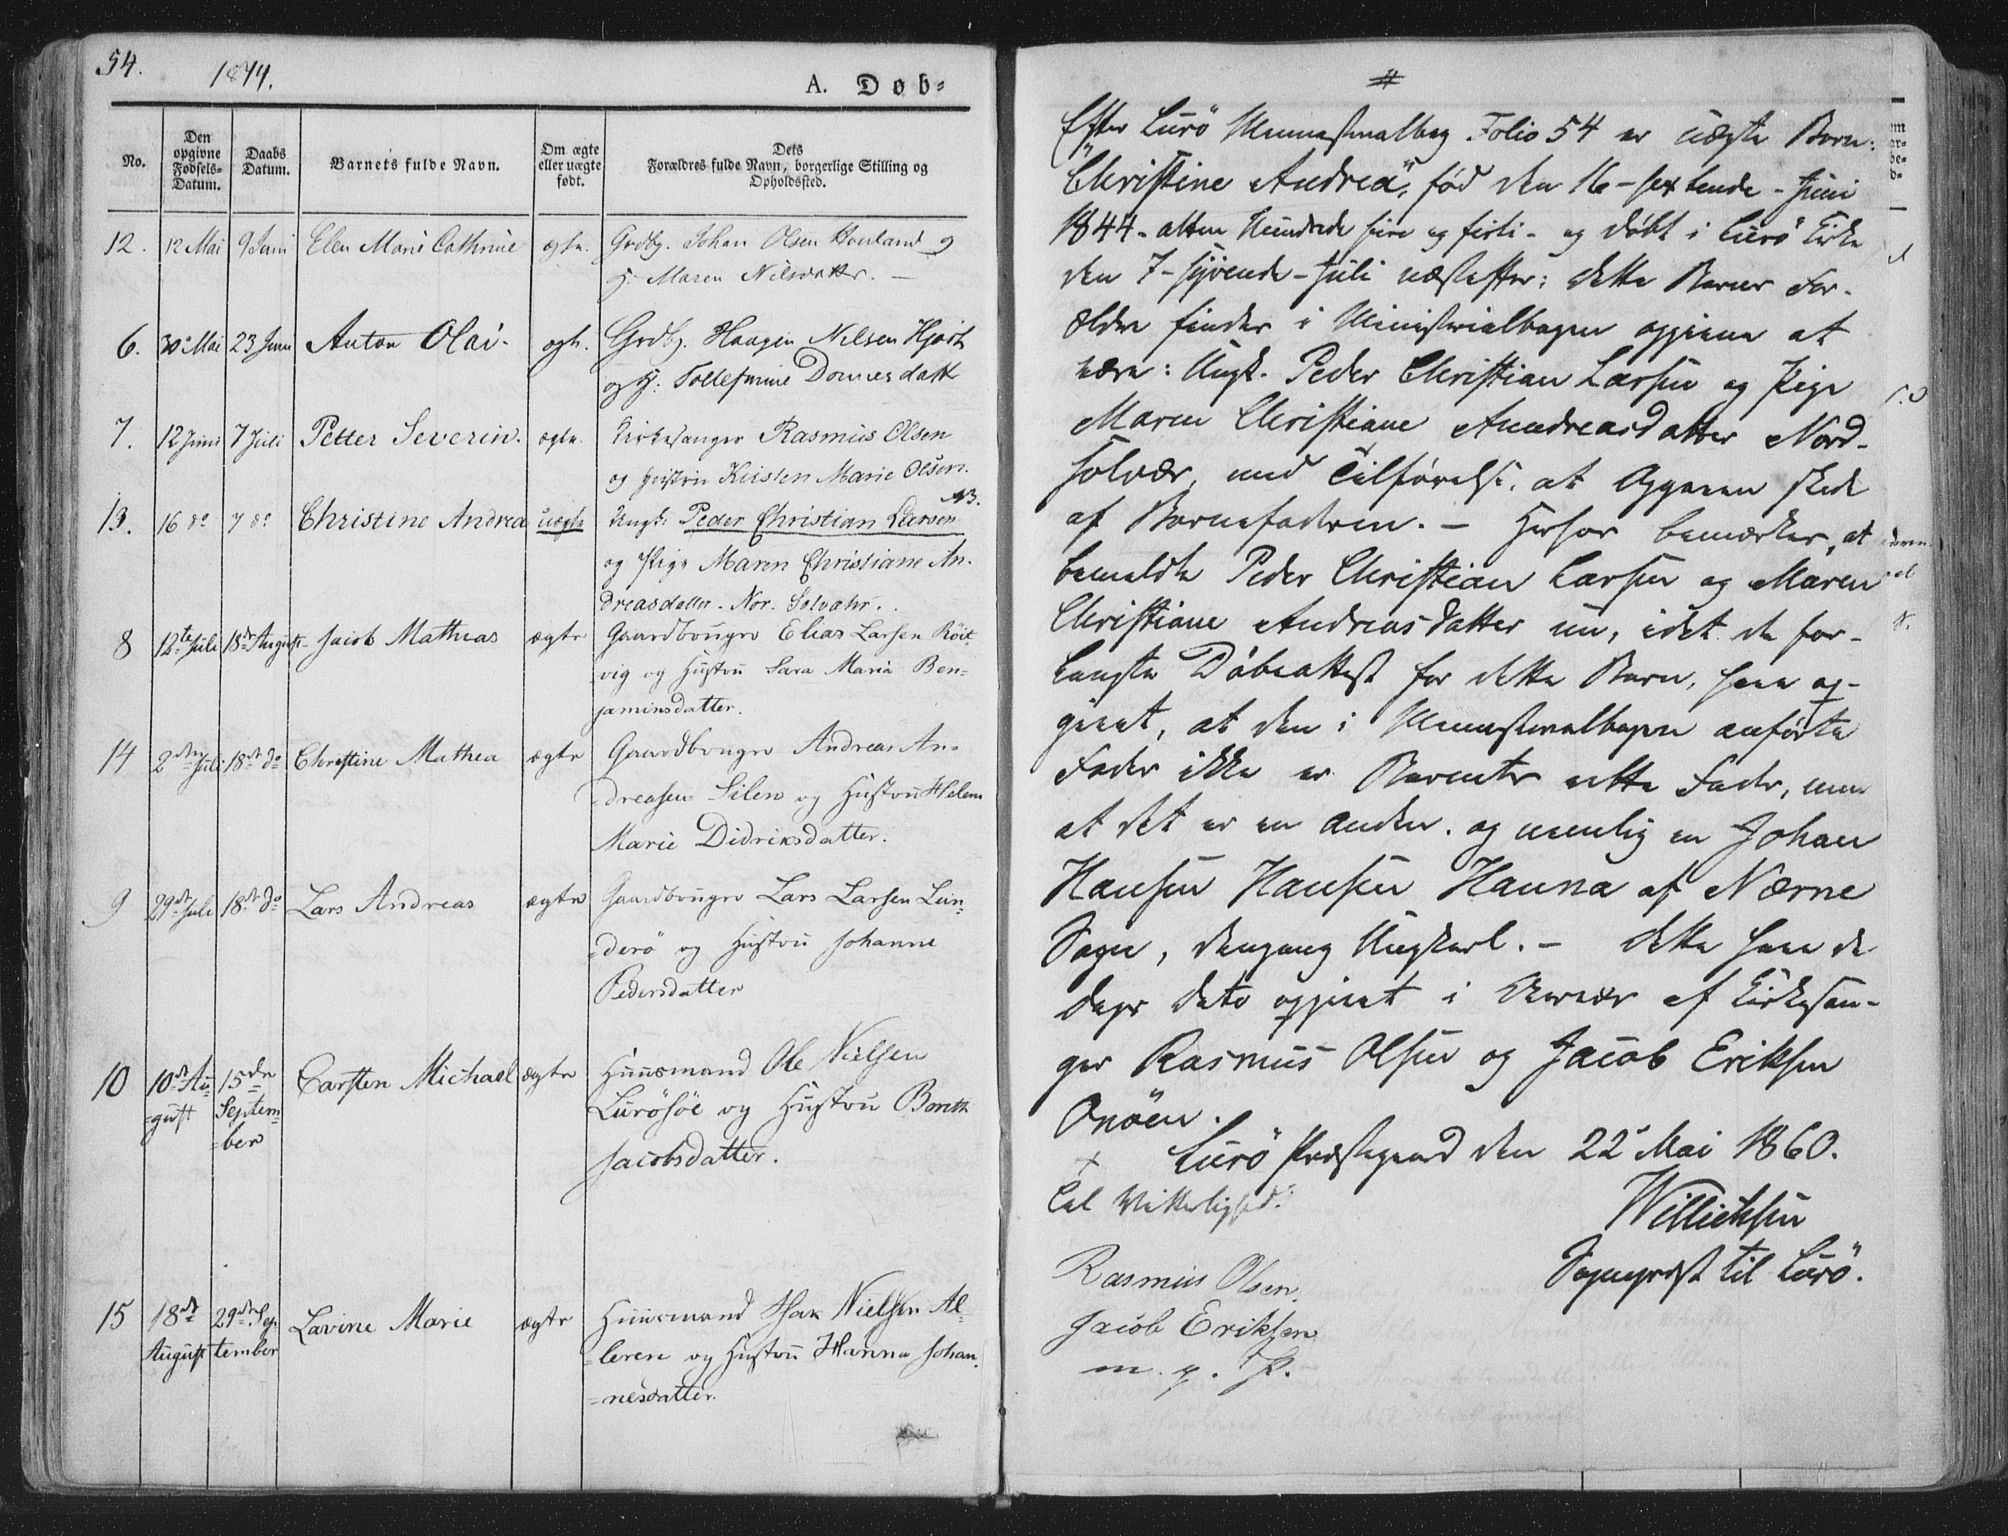 54.
1844.
A. Døb=
No.
Den opgivne Fødsels-Datum.
Daabs Datum.
Barnets fulde Navn.
Om ægte eller uægte født.
Dets Forældres fulde Navn, borgerlige Stilling og Opholdssted.
12. 12 Mai 9 Juni Ellen Marie Cathrine ægte. Grdbg. Johan Olsen Houland og
H. Maren Nilsdatter. —
6. 30 Mai 23 Juni Anton Olai. ægte. Grdbg. Haagen Nilsen Hjort
og H.
7. 12 Juni 7 Juli Petter Severin. ægte. Kirkesanger Rasmus Olsen
og Hustru Kirsten Marie Olsen.
NB.
13. 16 do 7 do Christine Andrea uægte Ungk: Peder Christian Larsen
og Pige Maren Christiane An-
dreasdatter. Nor. Solvær.
8 12te Juli 18de August Jacob Mathias ægte Gaardbruger Elias Larsen Röit-
vig og Hustru Sara Maria Ben-
jaminsdatter.
14 2den Juli 18de do Christine Mathea ægte Gaardbruger Andreas An-
dreasen Silen og Hustru Helene
Marie Didriksdatter.
9 29de Juli 18de do Lars Andreas ægte Gaardbruger Lars Larsen Lun-
derö og Hustru Johanne
Pedersdatter
10 10de Au- 15de Carsten Michael ægte Huusmand Ole Nielsen
gust Septem- Lurösöe og Hustru Bereth
ber Jacobsdatter.
15 18de 29de Sep- Lavine Marie ægte Huusmand Isak Nielsen Al-
August tember leren og Hustru Hanna Johan-
nesdatter.
#
Efter Lurö Ministerialbog Folio 54 er uægte Barn:
"Christine Andrea", född den 16 - sextende - Juni
1844 - atten Hundrede fire og firti - og döbt i Lurö Kirke
den 7 - syvende - Juli næstefter: dette Barns For-
ældre findes i Ministerialbogen opgivne at
være: Ungk. Peder Christian Larsen og Pige
Maren Christiane Andreasdatter Nord-
solvær, med Tilförelse, at Opgaven skede
af Barnefaderen. — Herfor bemærkes, at
bemeldte Peder Christian Larsen og Maren
Christiane Andreasdatter nu, idet de for-
langte Döbeattest for dette Barn, have op-
givet, at den i Ministerialbogen anförte
Fader ikke er Barnets rette Fader, men
at det er en anden, og nemlig en Johan
Hansen Hansen Hanna af Nærne
Sogn, dengang Ungkarl. — Dette have de
Dags Dato opgivet i Nærvær af Kirkesan-
ger Rasmus Olsen og Jacob Eriksen
Onöen.
Lurö Præstegaard den 22 Mai 1860.
Til Vitterlighed:
Willichsen
Sogneprest til Lurö.
Rasmus Olsen.
Jacob Eriksen
m. p. P.